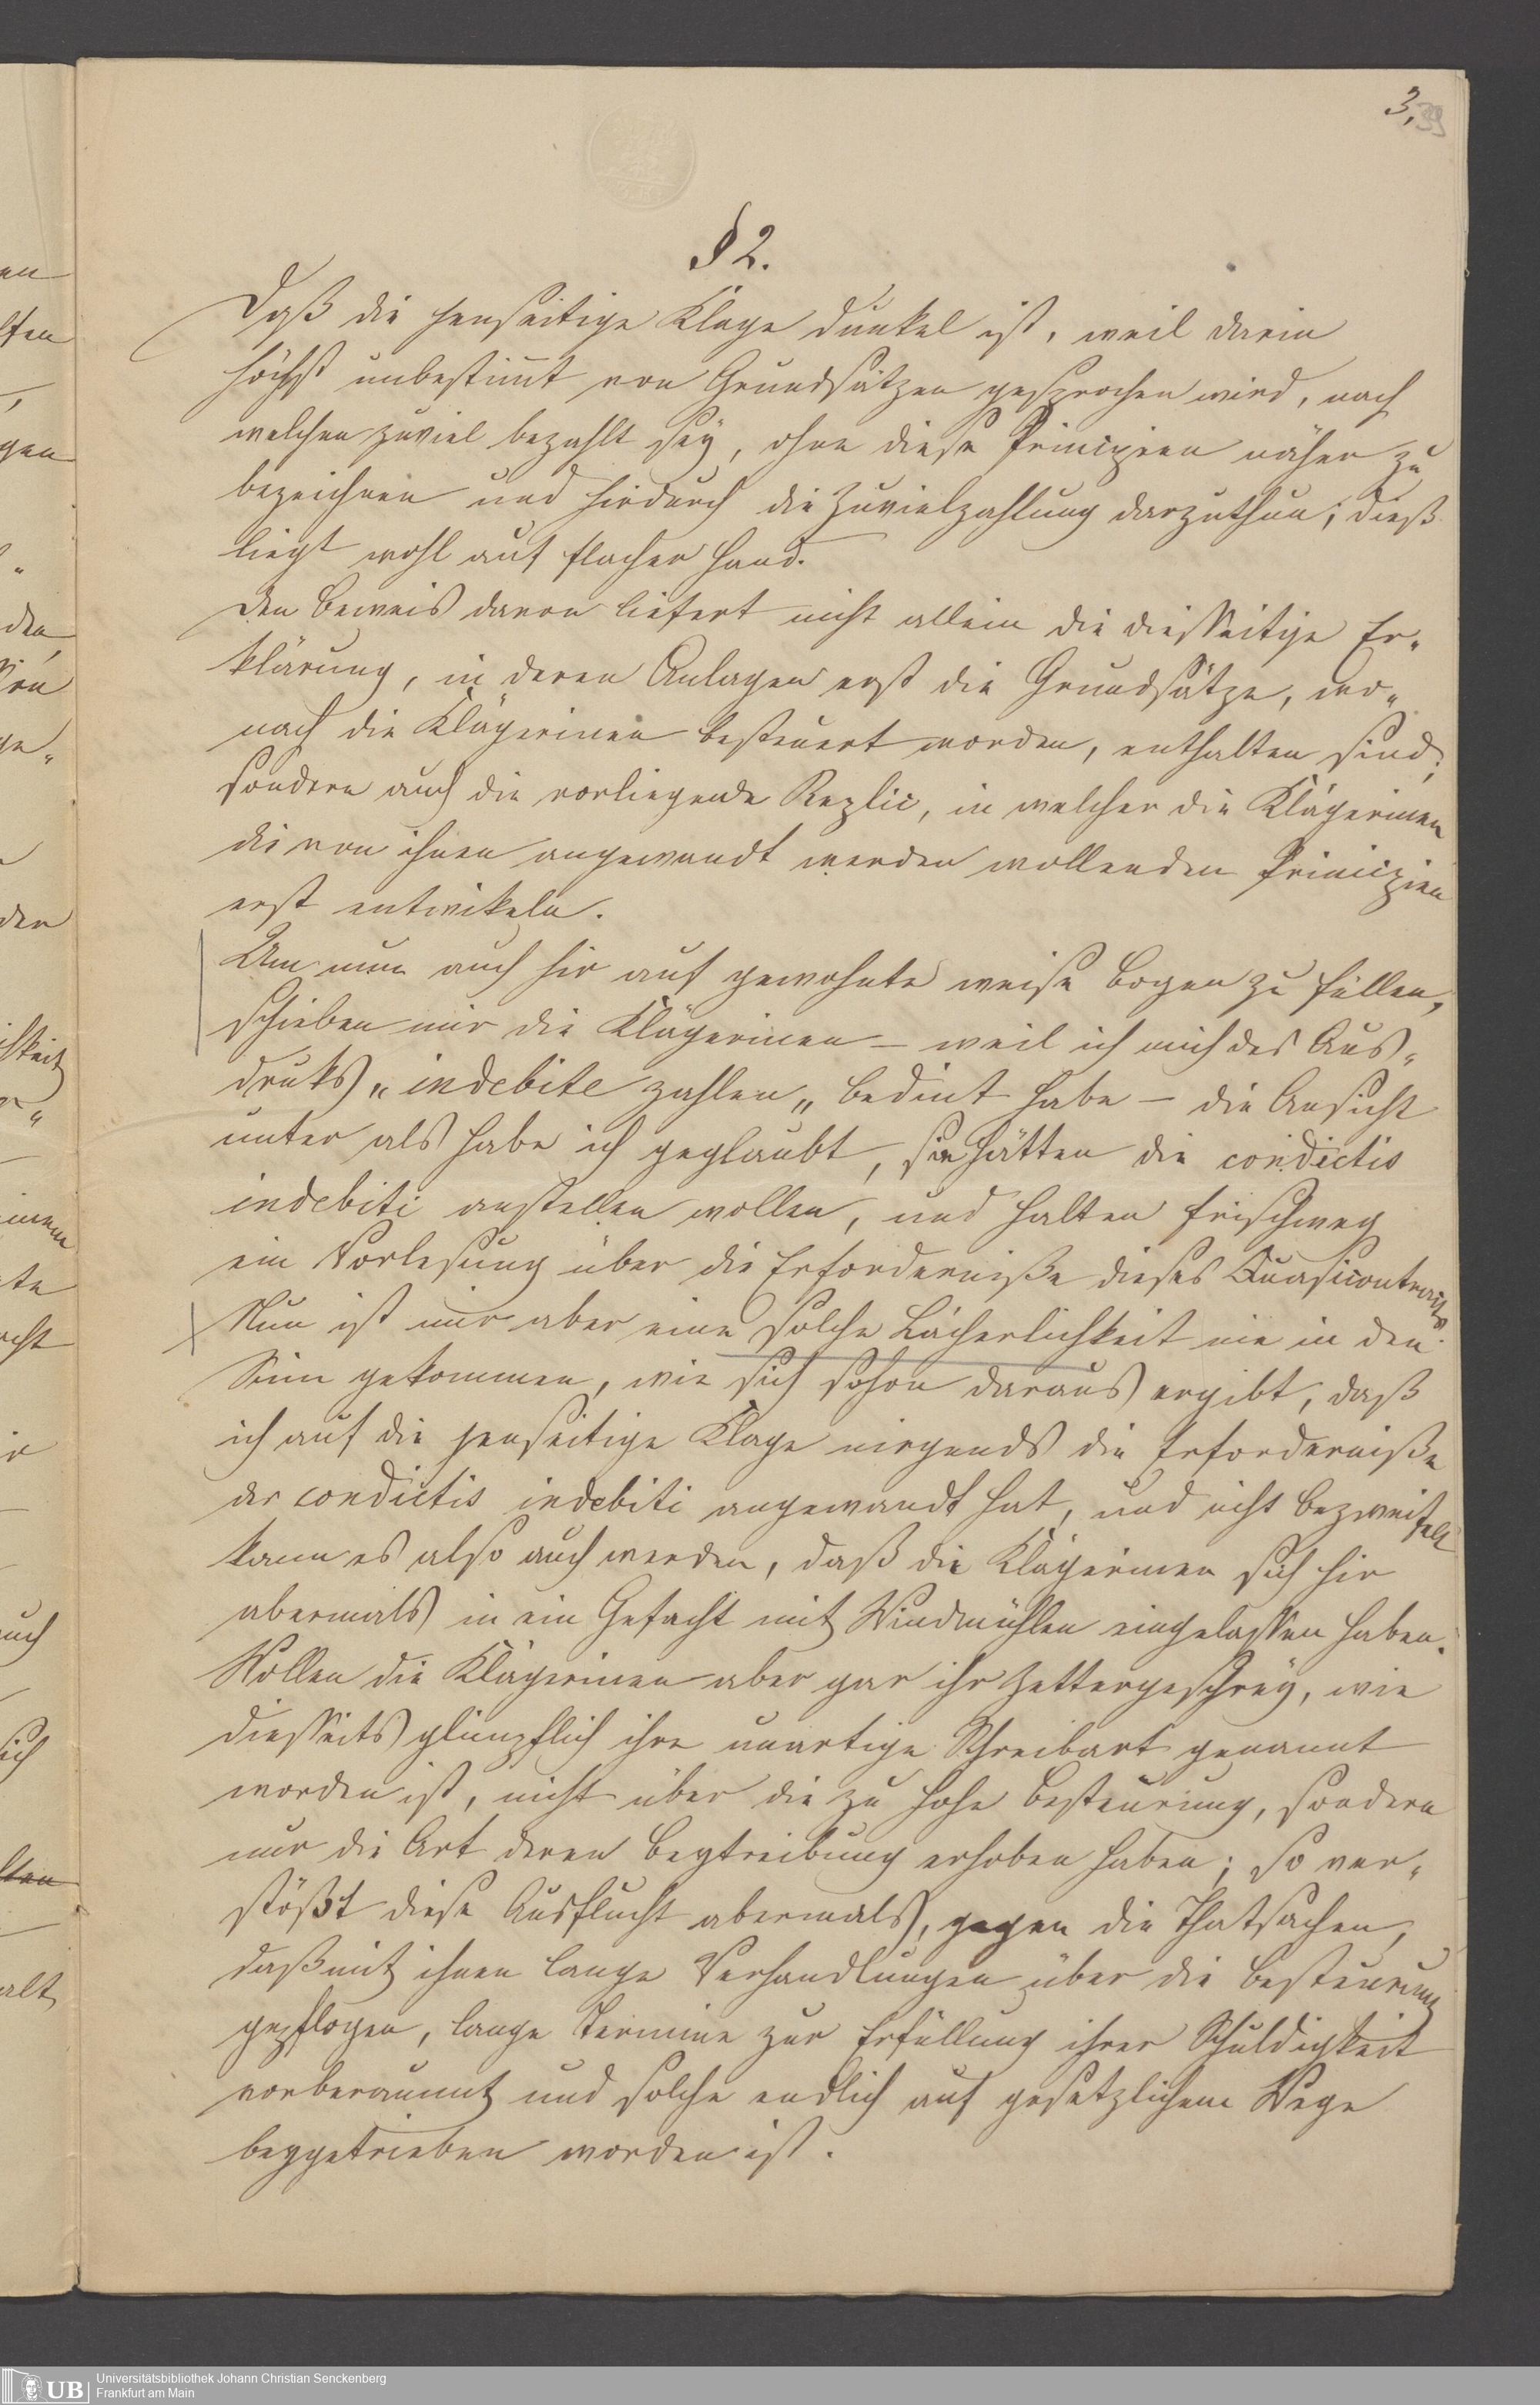 3.
39
§ 2.
Daß die jenseitige Klage dunkel ist, weil darin
höchst unbestimt von Grundsätzen gesprochen wird, nach
welchen zuviel bezahlt sey, ohne diese Principien näher zu
bezeichnen und hirdurch die Zuvielzahlung darzuthun; dieß
liegt wohl auf flacher Hand.
Den Beweis davon liefert nicht allein die diesseitige Er-
klärung, in deren Anlagen erst die Grundsätze, wo-
nach die Klägerinen besteuert worden, enthalten sind,
sondern auch die vorliegende Replic, in welcher die Klägerinen
die von ihnen angewandt werden wollenden Principien
erst entwikeln.
Um nun auch hir auf gewohnte weise Bogen zu füllen,
schieben mir die Klägerinen – weil ich mich des Aus-
druks „indebite zahlen„ bedint habe – die Ansicht
unter als habe ich geglaubt, sie hätten die condictio
indebiti anstellen wollen, und halten frischweg
ein Vorlesung über die Erforderniße dieses Quasicontracts
Nun ist mir aber eine solche Lächerlichkeit nie in den
Sinn gekommen, wie sich schon daraus ergibt, daß
ich auf die jenseitige Klage nirgends die Erforderniße
der condictio indebiti angewandt hat, und nicht bezweifelt
kann es also auch werden, daß die Klägerinen sich hir
abermals in ein Gefecht mit Windmühlen eingelassen haben.
Wollen die Klägerinen aber gar ihr Zettergeschrey, wie
diesseits glimpflich ihre unartige Schreibart genannt
worden ist, nicht über die zu hohe Besteurung, sondern
nur die Art deren Beytreibung erhoben haben; so ver-
stößt diese Ausflucht abermals, gegen die Thatsachen,
daß mit ihnen lange Verhandlungen über die Besteurung
gepflogen, lange Termine zur Erfüllung ihrer Schuldigkeit
vorberaumt und solche endlich auf gesetzlichem Wege
beygetrieben worden ist.
UB
Universitätsbibliothek Johann Christian Senckenberg
Frankfurt am Main